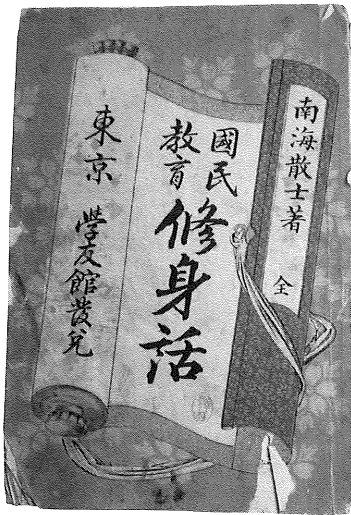 南海散士著
全
國民
教育
修身話
東京 學友館發兌